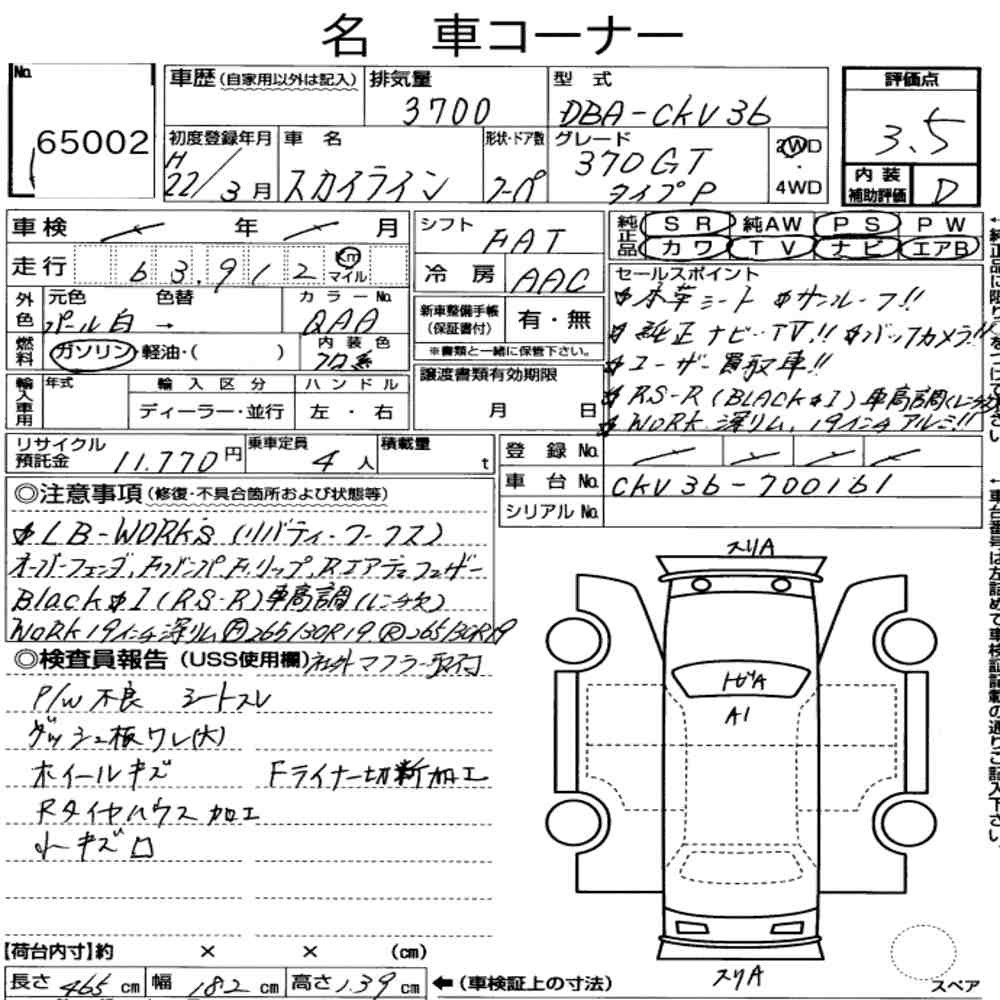 名 車コーナー
No.
65002
車歴 (自家用以外は記入)
排気量
3700
型 式
DBA-CKV36
評価点
3.5
初度登録年月
H
22/3月
車 名
スカイライン
形状・ドア数
クーペ
グレード
370GT
タイプP
2WD
・
4WD
内 装
補助評価
D
車検 年 月
走行 63,912 Km マイル
外色
元色 色替
パール白 →
カラーNo.
QAA
燃料
ガソリン・軽油・( )
内 装 色
クロ系
輸入車用
年式
輸 入 区 分
ディーラー・並行
ハ ン ド ル
左 ・ 右
シフト
FAT
冷 房
AAC
新車整備手帳
(保証書付)
有・無
※書類と一緒に保管下さい。
譲渡書類有効期限
月 日
純正品
SR 純AW PS PW
カワ TV ナビ エアB
セールスポイント
本革シート サンルーフ!!
純正ナビ・TV!! バックカメラ!!
ユーザー買取車!!
RS-R (BLACK I) 車高調(レンチ欠)
WORK 深リム、19インチアルミ!!
リサイクル
預託金
11.770円
乗車定員
4人
積載量
t
登 録 No.
車 台 No. CKV36-700161
シリアル No.
◎注意事項 (修復・不具合箇所および状態等)
LB-WORKS (リバティーワークス)
オーバーフェンダ、Fバンパ、F.リップ、R.エアディフューザー
Black I (RS-R) 車高調(レンチ欠)
WORK 19インチ深リム Ⓕ265/30R19 Ⓡ265/30R19
◎検査員報告 (USS使用欄) 社外マフラー取付
P/W不良 シートスレ
ダッシュ板ワレ(大)
ホイールキズ Fライナー切断加工
Rタイヤハウス加工
小キズ
スリA
トビA
A1
スリA
スペア
【荷台内寸】約 × × (cm)
長さ 465 cm 幅 182 cm 高さ 139 cm ←(車検証上の寸法)